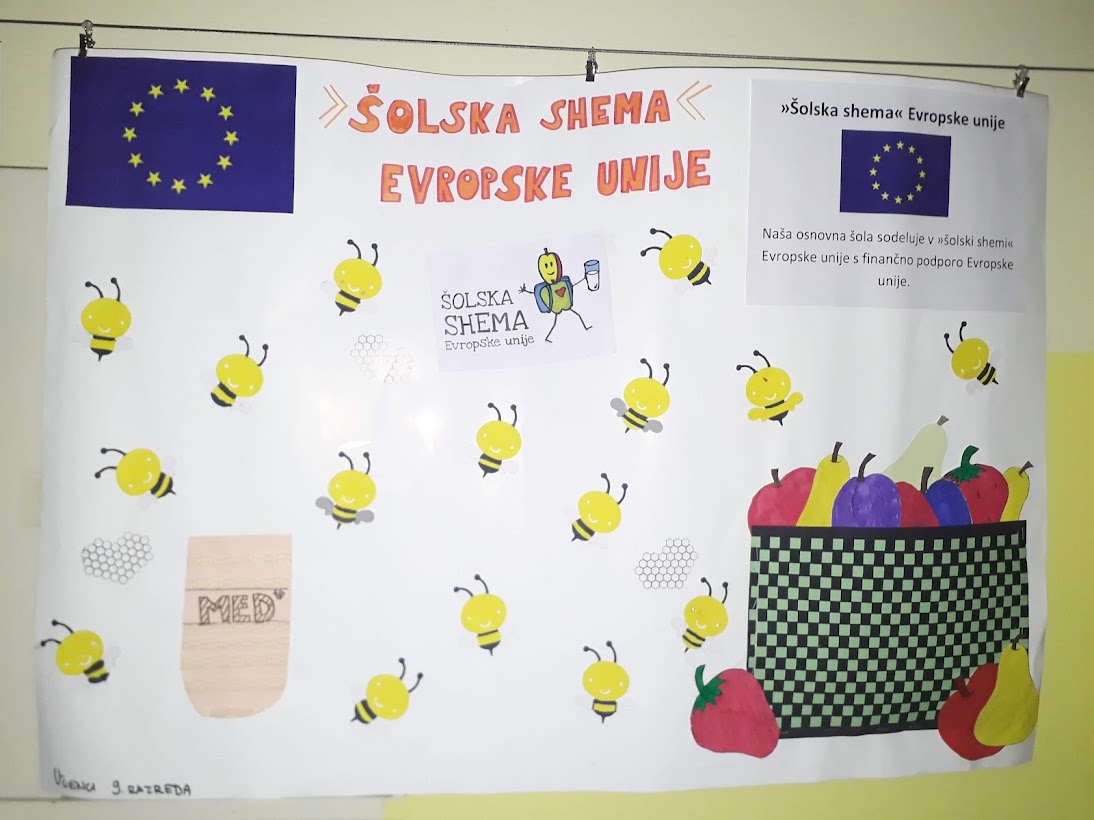 »ŠOLSKA SHEMA«
EVROPSKE UNIJE
»Šolska shema« Evropske unije
Naša osnovna šola sodeluje v »šolski shemi«
Evropske unije s finančno podporo Evropske
unije.
ŠOLSKA
SHEMA
Evropske unije
MED
UČENCI 9. RAZREDA